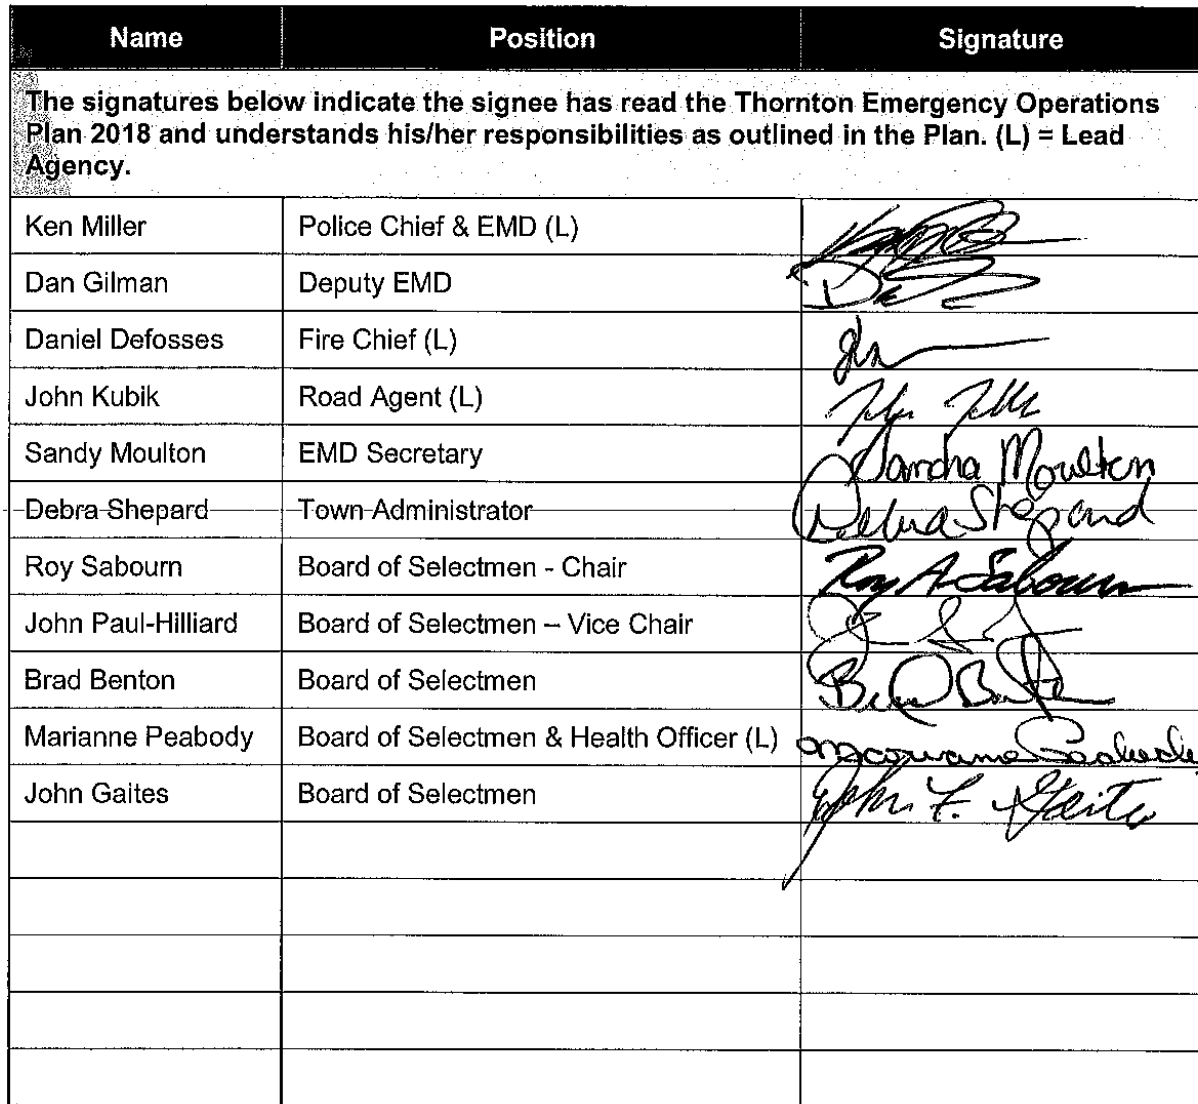 Name Position Signature
The signatures below indicate the signee has read the Thornton Emergency Operations
Plan 2018 and understands his/her responsibilities as outlined in the Plan. (L) = Lead
Agency.
Ken Miller Police Chief & EMD (L)
Dan Gilman Deputy EMD
Daniel Defosses Fire Chief (L)
John Kubik Road Agent (L)
Sandy Moulton EMD Secretary Sandra Moulton
Debra Shepard Town Administrator Debra Shepard
Roy Sabourn Board of Selectmen - Chair Roy A Sabourn
John Paul-Hilliard Board of Selectmen – Vice Chair
Brad Benton Board of Selectmen
Marianne Peabody Board of Selectmen & Health Officer (L) Marianne Peabody
John Gaites Board of Selectmen John F. Gaites